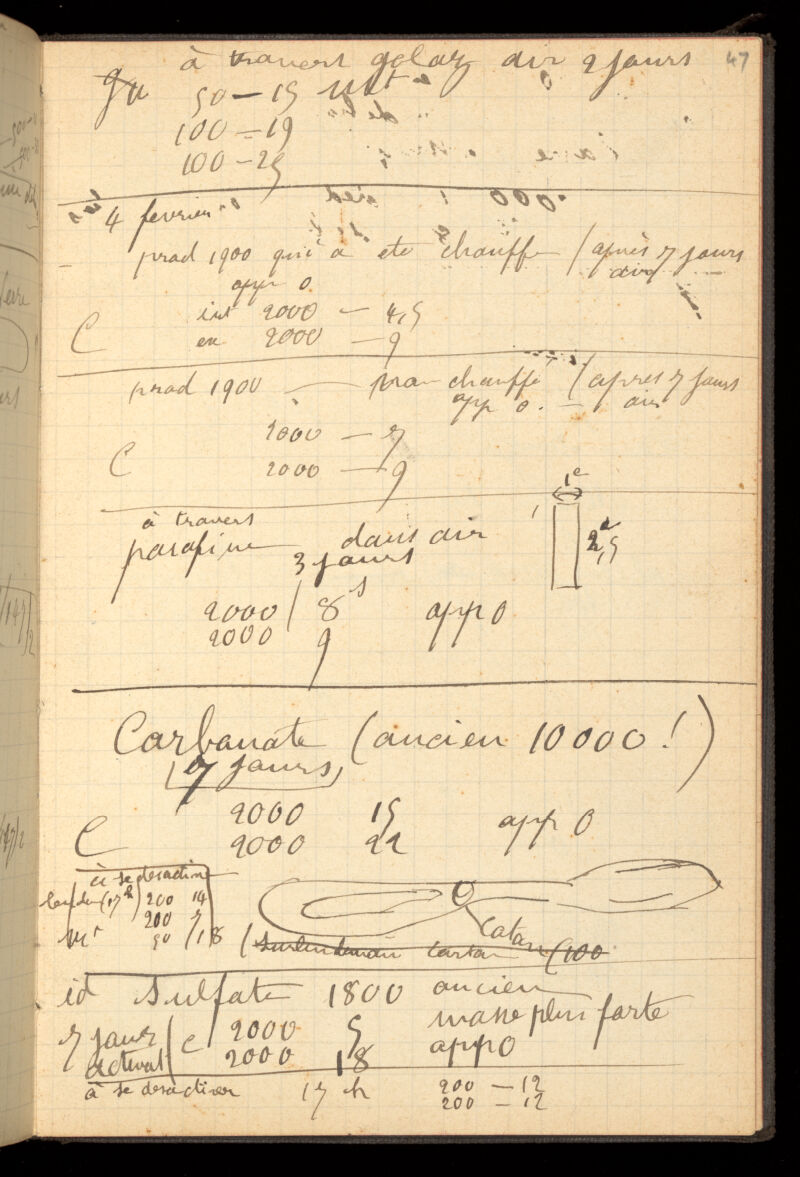 47
à travers golaz air 2 jours
50 — 15
100 — 19
100 — 25
4 fevrier
prad 1900 qui a ete chauffe (après 7 jours
app 0 air
int 2000 — 4,5
C en 2000 — 9
prad 1900 — non chauffé (apres 7 jours
app 0. — air
2000 — 7
C 2000 — 9
à travers
parafine dans air
3 jours
1c
2c,5
2000 / 8s app 0
2000 9
Carbonate (ancien 10000!)
(7 jours)
2000 15 app 0
C 2000 22
à se desactiver
(17h) 200 14
200 7
50 / 18
coton
(surlendemain carton (100
id sulfate 1800 ancien
masse plus forte
7 jours C 2000 5
activat 2000 18 app 0
à se desactiver 17 h 200 — 12
200 — 12